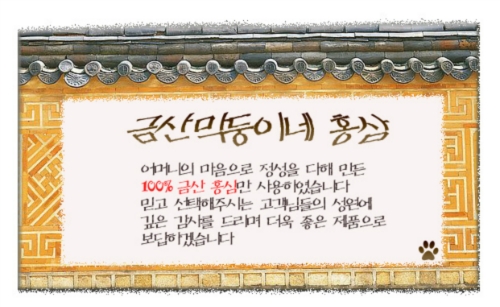 금산막둥이네 홍삼
어머니의 마음으로 정성을 다해 만든
100% 금산 홍삼만 사용하였습니다
믿고 선택해주시는 고객님들의 성원에
깊은 감사를 드리며 더욱 좋은 제품으로
보답하겠습니다